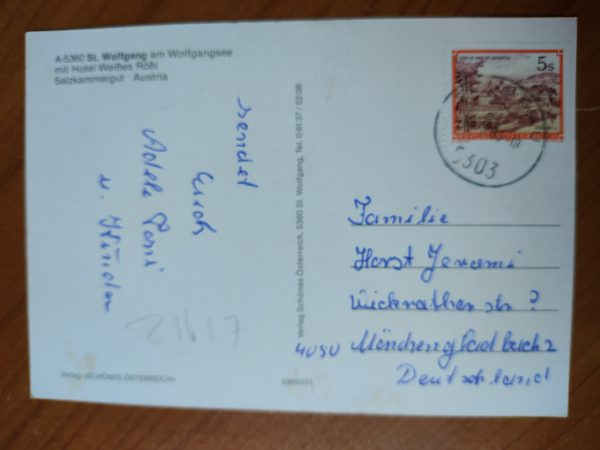 A-5360 St. Wolfgang am Wolfgangsee
mit Hotel Weißes Rößl
Salzkammergut - Austria
sendet
Euch
u. Kinder
21617
Verlag «SCHÖNES ÖSTERREICH»
5360/231
Verlag Schönes Österreich, 5360 St. Wolfgang, Tel. 0 61 37 / 52 08
5s
5303
Familie
Horst
Wickrather str 7
4050 Mönchengladbach 2
Deutschland